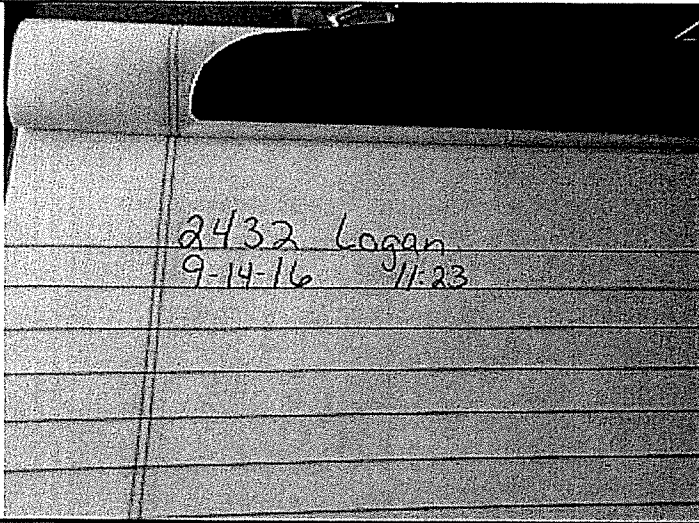 2432 Logan
9-14-16 11:23